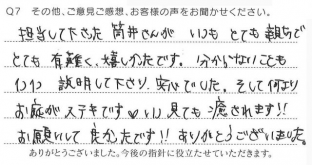 Q7 その他、ご意見ご感想、お客様の声をお聞かせください。
担当して下さった 筒井さんが いつも とても 親切で
とても 有難く、嬉しかったです。分からないことも
説明して下さり、安心でした。そして何より
お庭がステキです♥いつ見ても癒されます!!
お願いして 良かったです!! ありがとうございました。
ありがとうございました。今後の指針に役立たせていただきます。